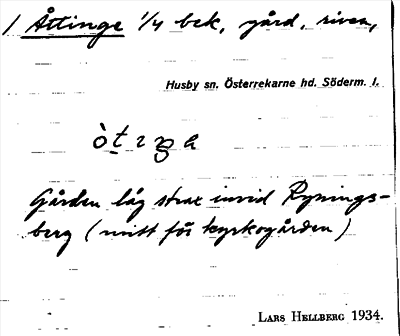 1 Åttinge 1/4 bek, gård, riven,
Husby sn. Österrekarne hd. Söderm. l.
Gården låg strax invid Rynings-
berg (mitt för kyrkogården)
LARS HELLBERG 1934.